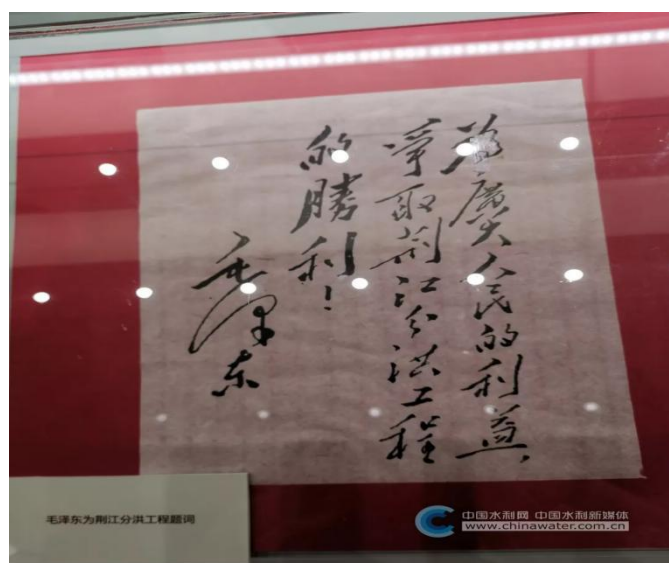 为广大人民的利益
爭取荆江分洪工程
的勝利！
毛泽东
毛泽东为荆江分洪工程题词
中国水利网 中国水利新媒体
www.chinawater.com.cn